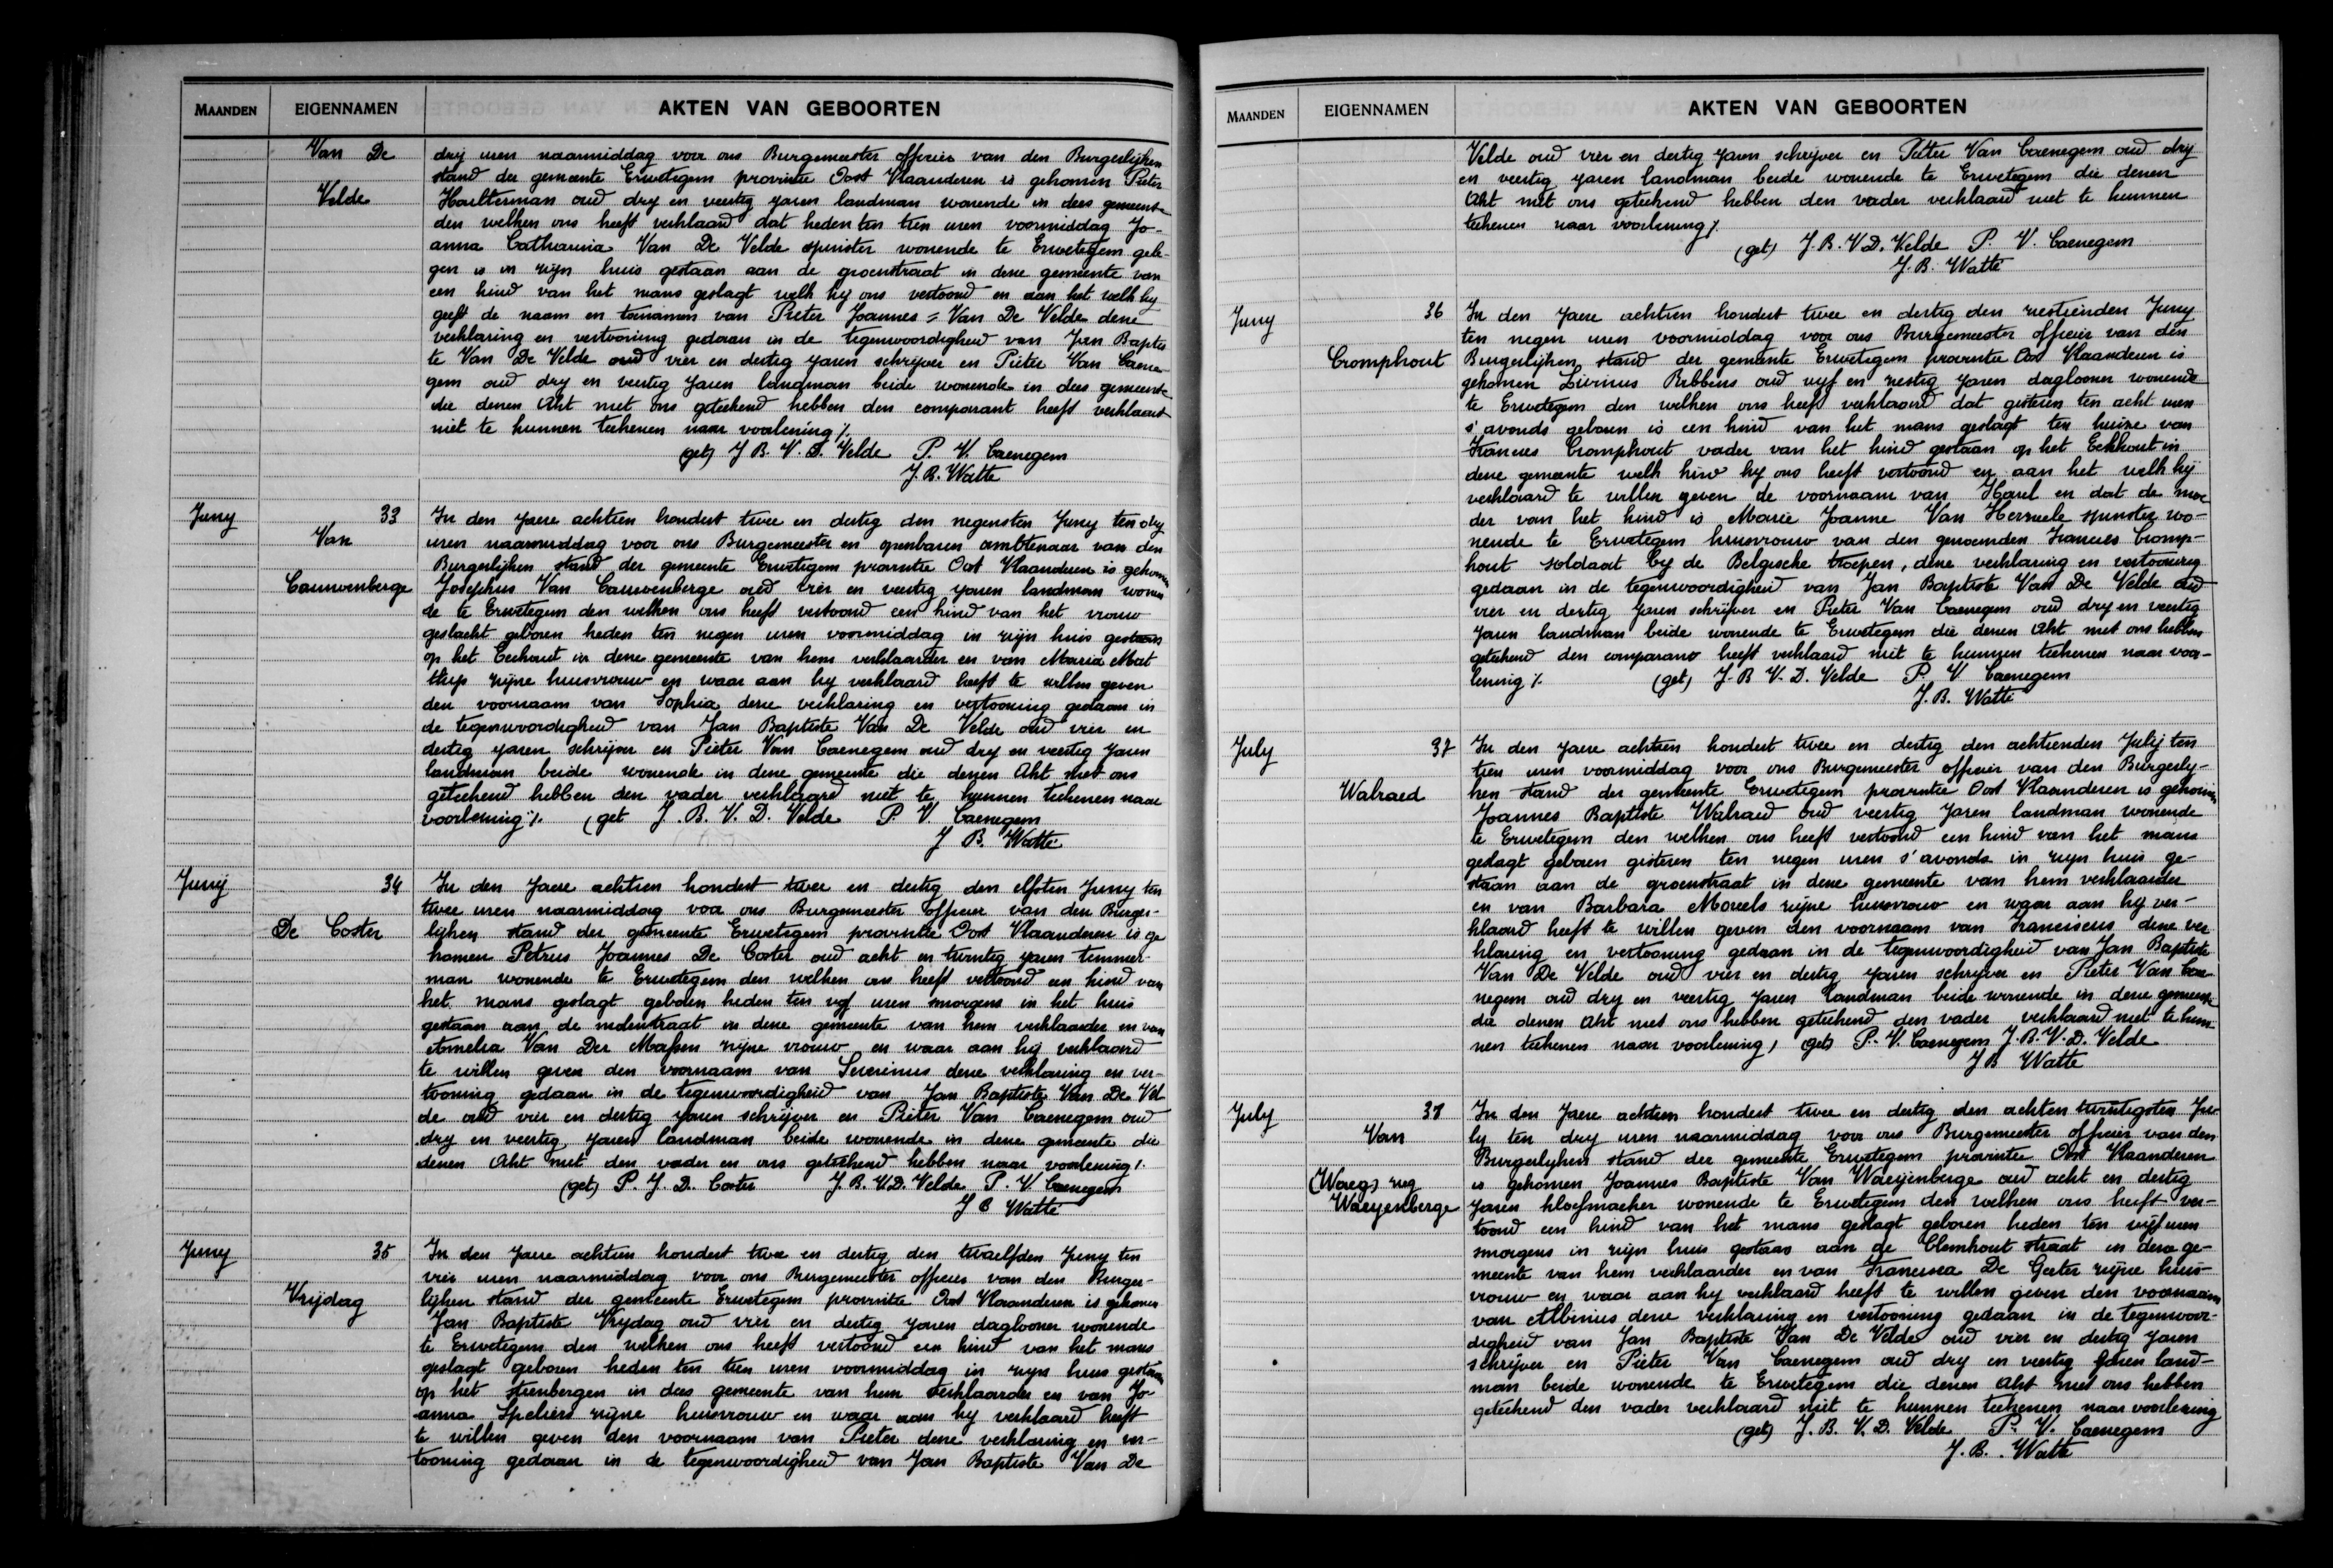 MAANDEN EIGENNAMEN AKTEN VAN GEBOORTEN
Van De
Velde
drij uren naarmiddag voor ons Burgemeester officier van den Burgerlijken
stand der gemeente Erwetegem provintie Oost Vlaanderen is gekomen Pieter
Haelterman oud dry en veertig jaren landman wonende in dees gemeente
den welken ons heeft verklaard dat heden ten tien uren voormiddag Jo-
anna Catharina Van De Velde spinster wonende te Erwetegem gele-
gen is in zijn huis gestaan aan de groenstraat in deze gemeente van
een kind van het mans geslagt welk hij ons vertoond en aan het welk hy
geeft de naam en toenamen van Pieter Joannes = Van De Velde deze
verklaring en vertooning gedaan in de tegenwoordigheid van Jan Baptis
te Van De Velde oud vier en dertig jaren schrijver en Pieter Van Caene-
gem oud dry en veertig jaren landman beide wonende in dees gemeente
die dezen Akt met ons geteekend hebben den comparant heeft verklaard
niet te kunnen teekenen naar voorlezing ./.
(get) J B. V. D. Velde P. V. Caenegem
J. B. Watte
Juny 33
Van
Cauwenberge
In den jaere achtien hondert twee en dertig den negensten Juny ten dry
uren naarmiddag voor ons Burgemeester en openbaren ambtenaar van den
Burgerlijken stand der gemeente Erwetegem provintie Oost Vlaanderen is gekomen
Josephus Van Cauwenberge oud vier en veertig jaren landman wonen
de te Erwetegem den welken ons heeft vertoond een kind van het vrouw
geslacht geboren heden ten negen uren voormiddag in zijn huis gestaan
op het Eeckhout in deze gemeente van hem verklaarder en van Maria Mat
thys zijne huisvrouw en waar aan hy verklaard heeft te willen geven
den voornaam van Sophia deze verklaring en vertooning gedaan in
de tegenwoordigheid van Jan Baptiste Van De Velde oud vier en
dertig jaren schrijver en Pieter Van Caenegem oud dry en veertig jaren
landman beide wonende in deze gemeente die dezen Akt met ons
geteekend hebben den vader verklaard niet te kunnen teekenen naar
voorlezing ./. (get J. B. V. D. Velde P V. Caenegem
J B. Watté
Junij 34
De Coster
In den Jaere achtien hondert twee en dertig den elfsten Juny ten
twee uren naarmiddag voor ons Burgemeester officier van den Burger-
lijken stand der gemeente Erwetegem provintie Oost Vlaanderen is ge
komen Petrus Joannes De Coster oud acht en twintig jaren timmer-
man wonende te Erwetegem den welken ons heeft vertoond een kind van
het mans geslagt geboren heden ten vyf uren smorgens in het huis
gestaan aan de molenstraat in deze gemeente van hem verklaarder en van
Amelia Van Der Massen zijne vrouw en waar aan hij verklaard
te willen geven den voornaam van Severinus deze verklaring en ver-
tooning gedaan in de tegenwoordigheid van Jan Baptiste Van De Vel
de oud vier en dertig jaren schrijver en Pieter Van Caenegem oud
dry en veertig jaren landman beide wonende in deze gemeente die
dezen Akt met den vader en ons geteekend hebben naar voorlezing /.
(get) P. J. D. Coster J B. V.D. Velde P. V. Caenegem
J B Watté
Juny 35
Vrijdag
In den jaere achtien hondert twee en dertig den twaelfden Juny ten
vier uren naarmiddag voor ons Burgemeester officier van den Burger-
lijken stand der gemeente Erwetegem provintie Oost Vlaanderen is gekomen
Jan Baptiste Vrijdag oud vier en dertig jaren daglooner wonende
te Erwetegem den welken ons heeft vertoond een kind van het mans
geslagt geboren heden ten tien uren voormiddag in zyn huis gestaan
op het steenbergen in dees gemeente van hem verklaarder en van Jo-
anna Speliers zijne huisvrouw en waar aan hy verklaard heeft
te willen geven den voornaam van Pieter deze verklaring en ver-
tooning gedaan in de tegenwoordigheid van Jan Baptiste Van De
MAANDEN EIGENNAMEN AKTEN VAN GEBOORTEN
Velde oud vier en dertig jaren schrijver en Pieter Van Caenegem oud dry
en veertig jaren landman beide wonende te Erwetegem die dezen
Akt met ons geteekend hebben den vader verklaard niet te kunnen
teekenen naar voorlezing /.
(get) J. B. V. D. Velde P. V. Caenegem
J. B. Watté
Juny 36
Cromphout
In den Jaere achtien hondert twee en dertig den zestienden Juny
ten negen uren voormiddag voor ons Burgemeester officier van den
Burgerlijken stand der gemeente Erwetegem provintie Oost Vlaanderen is
gekomen Livinus Rebbens oud vyf en zestig jaren daglooner wonende
te Erwetegem den welken ons heeft verklaard dat gisteren ten acht uren
s' avonds geboren is een kind van het mans geslagt ten huize van
Francies Cromphout vader van het kind gestaan op het Eekhout in
deze gemeente welk kind hy ons heeft vertoond en aan het welk hij
verklaard te willen geven de voornaam van Karel en dat de moe
der van het kind is Marie Joanne Van Herzeele spinster wo-
nende te Erwetegem huisvrouw van den genoemden Francies Cromp-
hout soldaat by de Belgische troepen, deze verklaring en vertooning
gedaan in de tegenwoordigheid van Jan Baptiste Van De Velde oud
vier en dertig jaren schrijver en Pieter Van Caenegem oud dry en veertig
jaren landman beide wonende te Erwetegem die dezen Akt met ons hebben
geteekend den comparant heeft verklaard niet te kunnen teekenen naar voor-
lezing ./. (get) J. B V. D. Velde P. V Caenegem
J. B. Watté
July 37
Walraed
In den Jaere achtien hondert twee en dertig den achtienden Julij ten
tien uren voormiddag voor ons Burgemeester officier van den Burgerly-
ken stand der gemeente Erwetegem provintie Oost Vlaanderen is gekomen
Joannes Baptiste Walraed oud veertig jaren landman wonende
te Erwetegem den welken ons heeft vertoond een kind van het mans
geslagt geboren gisteren ten negen uren s' avonds in zyn huis ge-
staan aan de groenstraat in deze gemeente van hem verklaarder
en van Barbara Moreels zijne huisvrouw en waar aan hy ver-
klaard heeft te willen geven den voornaam van Franciscus deze ver
klaring en vertooning gedaan in de tegenwoordigheid van Jan Baptiste
Van De Velde oud vier en dertig jaren schrijver en Pieter Van Cae
negem oud dry en veertig jaren landman beide wonende in deze gemeente
die dezen Akt met ons hebben geteekend den vader verklaard niet te kun-
nen teekenen naar voorlezing, (get) P. V. Caenegem J. B. V. D. Velde
J B Watte
July 38
Van
(Waeg) zeg
Waeyenberge
In den Jaere achtien hondert twee en dertig den achten twintigsten Ju-
ly ten dry uren naarmiddag voor ons Burgemeester officier van den
Burgerlyken stand der gemeente Erwetegem provintie Oost Vlaanderen
is gekomen Joannes Baptiste Van Waeyenberge oud acht en dertig
jaren kloefmaeker wonende te Erwetegem den welken ons heeft ver-
toond een kind van het mans geslagt geboren heden ten vijf uren
smorgens in zijn huis gestaan aan de Clemhout straat in deze ge-
meente van hem verklaarder en van Francisca De Geeter zijne huis-
vrouw en waar aan hy verklaard heeft te willen geven den voornaam
van Albinus deze verklaring en vertooning gedaan in de tegenwoor-
digheid van Jan Baptiste Van De Velde oud vier en dertig jaren
schrijver en Pieter Van Caenegem oud dry en veertig jaren land-
man beide wonende te Erwetegem die dezen Akt met ons hebben
geteekend den vader verklaard niet te kunnen teekenen naar voorlezing
(get) J. B. V. D. Velde P. V. Caenegem
J. B. Watte